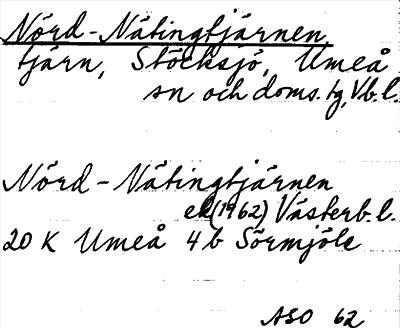 Nörd-Nätingtjärnen
tjärn, Stöcksjö, Umeå
sn och doms. tg, Vb. l.
Nörd-Nätingtjärnen
ek(1962) Västerb. l.
20 K Umeå 4 b Sörmjöle
ASO 62